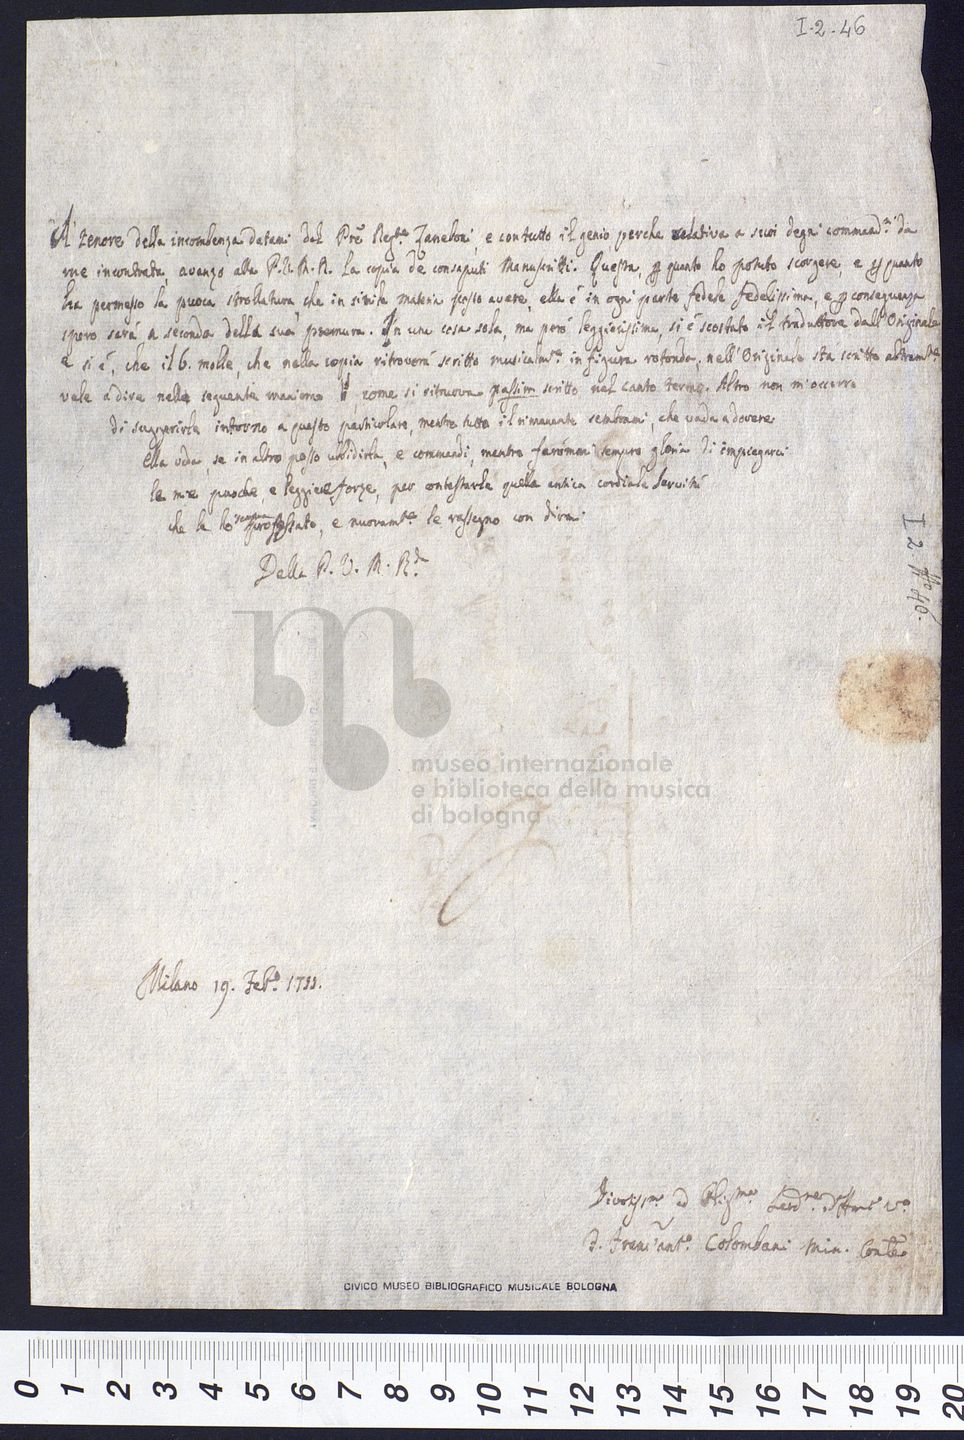 I-2-46
A' tenore della incombenza datami dal Prē Regte Zaneboni, e con tutto il genio perche relativa a suoi degni command.ti da
me incontrata avanzo alla P. V. M. R. la copia de consaputi Manuscritti. Questa, p quanto ho potuto scorgere e p quanto
ha permesso la puoca strollatura, che in simile materia posso avere, ella é in ogni parte fedele fedelissima, e p conseguenza
spero sará a seconda della sua premura. In una cosa sola, ma peró leggierissima, si é scostato il traduttore dall'Originale
e si é, che il 6. molle, che nella copia ritroverá scritto musicalmte in figura rotonda, nell'Originale stá scritto altramte
vale a dire nella seguente maniera, come si ritruova passim scritto nel canto fermo. Altro non m'occorre
di suggerirle intorno a questo particolare, mentre tutto il rimanente sembrami, che vada a dovere
Ella veda, se in altro posso ubbidirla, e commandi, mentre farommi sempre gloria di impiegarci
le mie puoche, e leggiere forze, per contestarle quella antica cordiale servitú
che le ho sempre professato, e nuovamte le rassegno con dirmi
Della P. V. M. Rda
I 2 No 46.
museo internazionale
e biblioteca della musica
di bologna
Milano 19. Febo. 1755.
Divotissmo ed Obligmo Servre
D. Franc'anto. Colombani Min. Conle
CIVICO MUSEO BIBLIOGRAFICO MUSICALE BOLOGNA
0 1 2 3 4 5 6 7 8 9 10 11 12 13 14 15 16 17 18 19 20